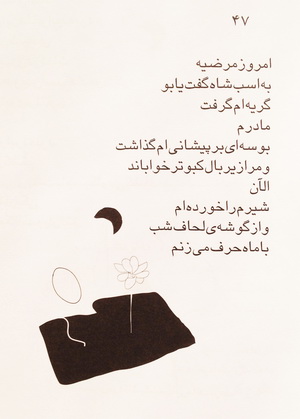 ۴۷
امروز مرضیه
به اسب شاه گفت یابو
گریه‌ام گرفت
مادرم
بوسه‌ای بر پیشانی‌ام گذاشت
و مرا زیر بال کبوتر خواباند
الآن
شیرم را خورده‌ام
و از گوشه‌ی لحاف شب
با ماه حرف می‌زنم